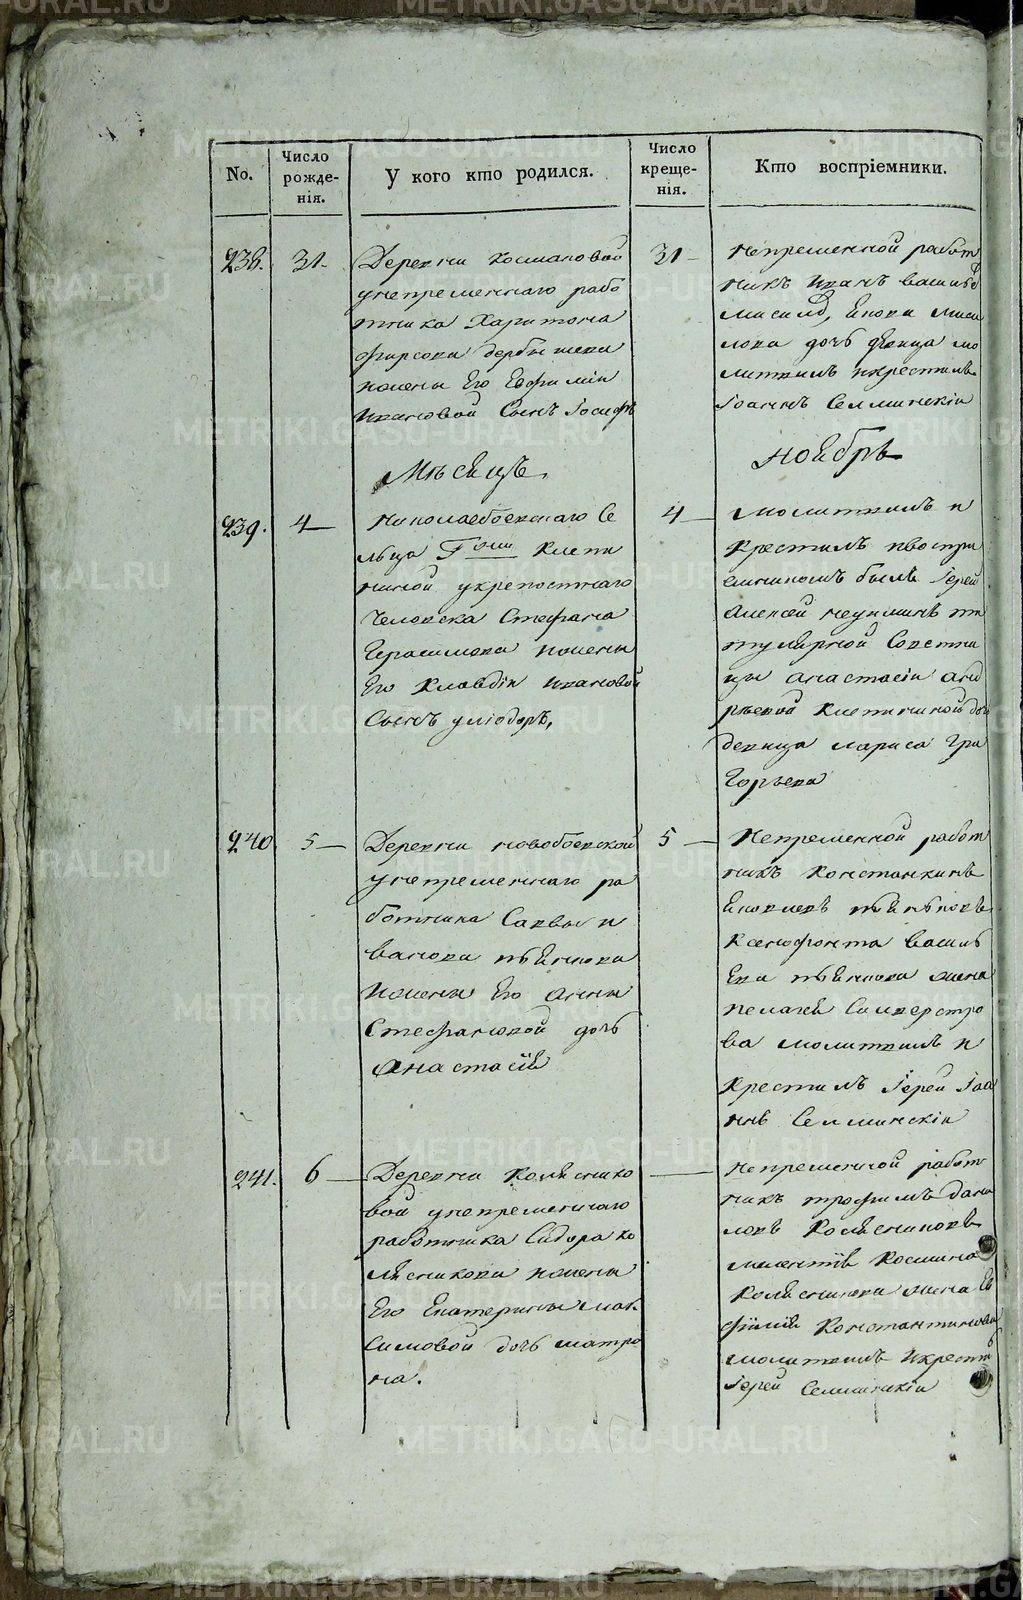 No.
Число рожде-
нія.
У кого кто родился.
Число креще-
нія.
Кто воспріемники.
238.
31.
Деревни Космаковой
унепременнаго рабо
тника Харитона
Фирсова дербышева
ижены Его Евфиміи
Ивановой Сынъ Іосифъ
31
Непременной работ
никъ Иванъ
дочь девица мо
литвилъ икрестилъ
Іоаннъ Селминскіи
Мѣсяцъ
Ноябрь
239.
4
Николаебоевскаго Се
льца Гжи Клепи
ниной укрепостнаго
Человека Стефана
Герасимова ижены
Его Клавдіи Ивановой
Сынъ уліодоръ,
4
Молитвилъ и
Крестилъ ивоспри
емникомъ былъ Іерей
Алексей ти
тулярной Советни
цы Анастасіи Анд
рѣевой Клепининой дочь
девица Лариса Гри
горьева
240
5
Деревни новобоевской
унепременнаго ра
ботника Саввы и
ванова пьянкова
ижены Его Анны
Стефановой дочь
Анастасія
5
Непременной работ
никъ Константинъ
Яковлевъ пьянковъ
Ксенофонта Василь
ева пьянкова жена
Пелагея Силверстро
ва молитвилъ и
Крестилъ Іерей Іоа
ннъ Селминскіи
241.
6
Деревни Коляснико
вой унепременнаго
работника Сидора ко
лясникова ижены
Его Екатерины мак
симовой дочь матро
на.
Непременной работ
никъ трофимъ Дани
ловъ Колясниковъ
Колясникова жена Ев
фимія Константинова
молитвилъ Икрести
Іерей Селминскіи
METRIKI.GASO-URAL.RU